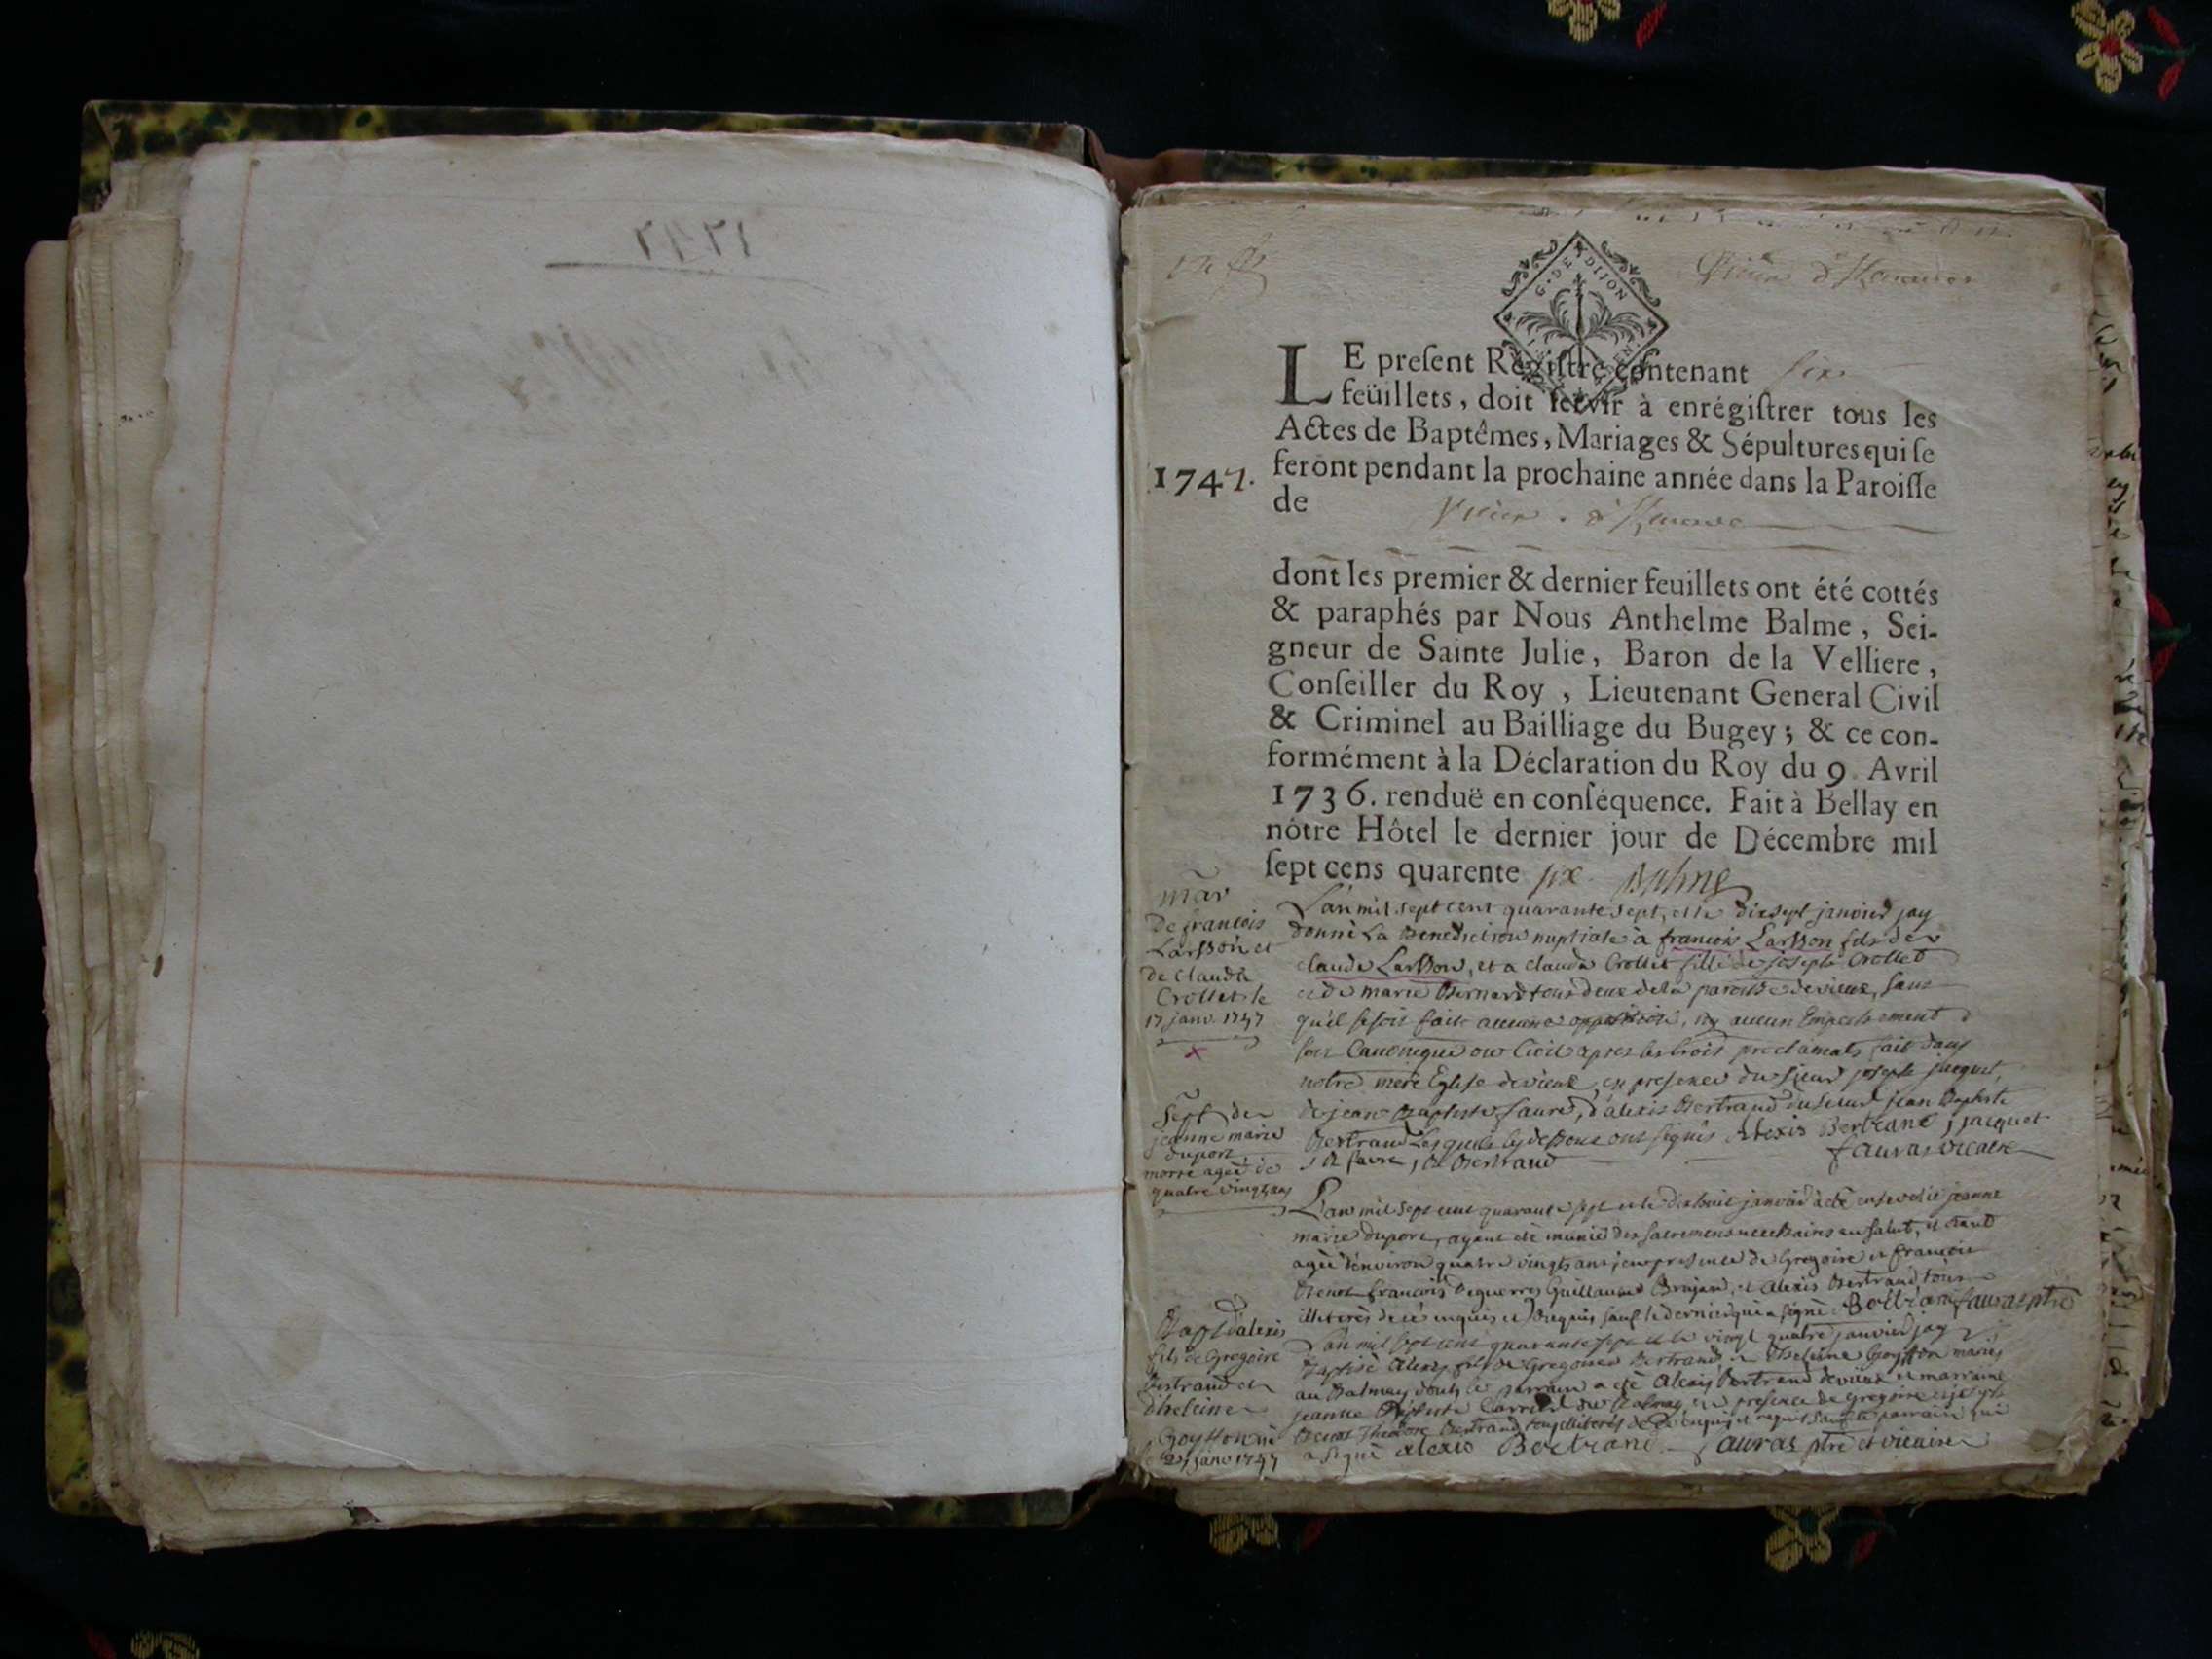 1747
G. DE DIJON
LE preſent Régiſtre contenant six
feüillets, doit ſervir à enrégiſtrer tous les
Actes de Baptêmes, Mariages & Sépultures qui ſe
feront pendant la prochaine année dans la Paroiſſe
1747.
de
dont les premier & dernier feuillets ont été cottés
& paraphés par Nous Anthelme Balme, Sei-
gneur de Sainte Julie, Baron de la Velliere,
Conſeiller du Roy, Lieutenant General Civil
& Criminel au Bailliage du Bugey; & ce con-
formément à la Déclaration du Roy du 9. Avril
1736. renduë en conſéquence. Fait à Bellay en
nôtre Hôtel le dernier jour de Décembre mil
ſept cens quarente six Balme
mar
de francois
Larsson et
de Clauda
Crollet le
17 janv. 1747
L'an mil sept cent quarante sept, et le dixsept janvier jay
donné La Benediction nuptiale à francois Larsson fils de
claude Larsson, et a clauda Crollet fille de joseph Crollet
et de marie Bernard tous deux de la paroisse de vieux, sans
qu'il se soit fait aucune opposition, ny aucun Empeschement
soit Canonique ou Civil apres les trois proclamats fait dans
notre mere Eglise de vieux, en presence du sieur joseph jacquet,
de jean Baptiste faure, d'alexis Bertrand du sieur jean Baptiste
Bertrand Lesquels cy dessous ont signés Alexis Bertrand, jacquet
favre, Bertrand fauras vicaire
Sept de
jeanne marie
duport
morte agée de
quatre vingt ans
L'an mil sept cent quarante sept et le dixhuit janvier a eté ensevelie jeanne
marie duport, ayant eté munie des sacremens necessaires au salut, et etant
agée d'environ quatre vingts ans, en presence de Gregoire et francois
Benot francois Guillaume et alexis Bertrand tous
illiterés de ce enquis et requis sauf le dernier qui a signé Bertrand fauras ptre
Bapt d'alexis
fils de Gregoire
Bertrand et
d'heleine
Goyffon né
24 janv 1747
L'an mil sept cent quarante sept et le vingt quatre janvier jay
Baptisé alexis fils de Gregoire Bertrand et d'heleine Goyffon mariés
au Balmay dont le parrain a eté alexis Bertrand de vieux et marraine
jeanne du Balmay, en presence de Gregoire et joseph
Benot Bertrand tous illiterés de ce enquis et requis sauf le parrain qui
a signé alexis Bertrand fauras ptre et vicaire